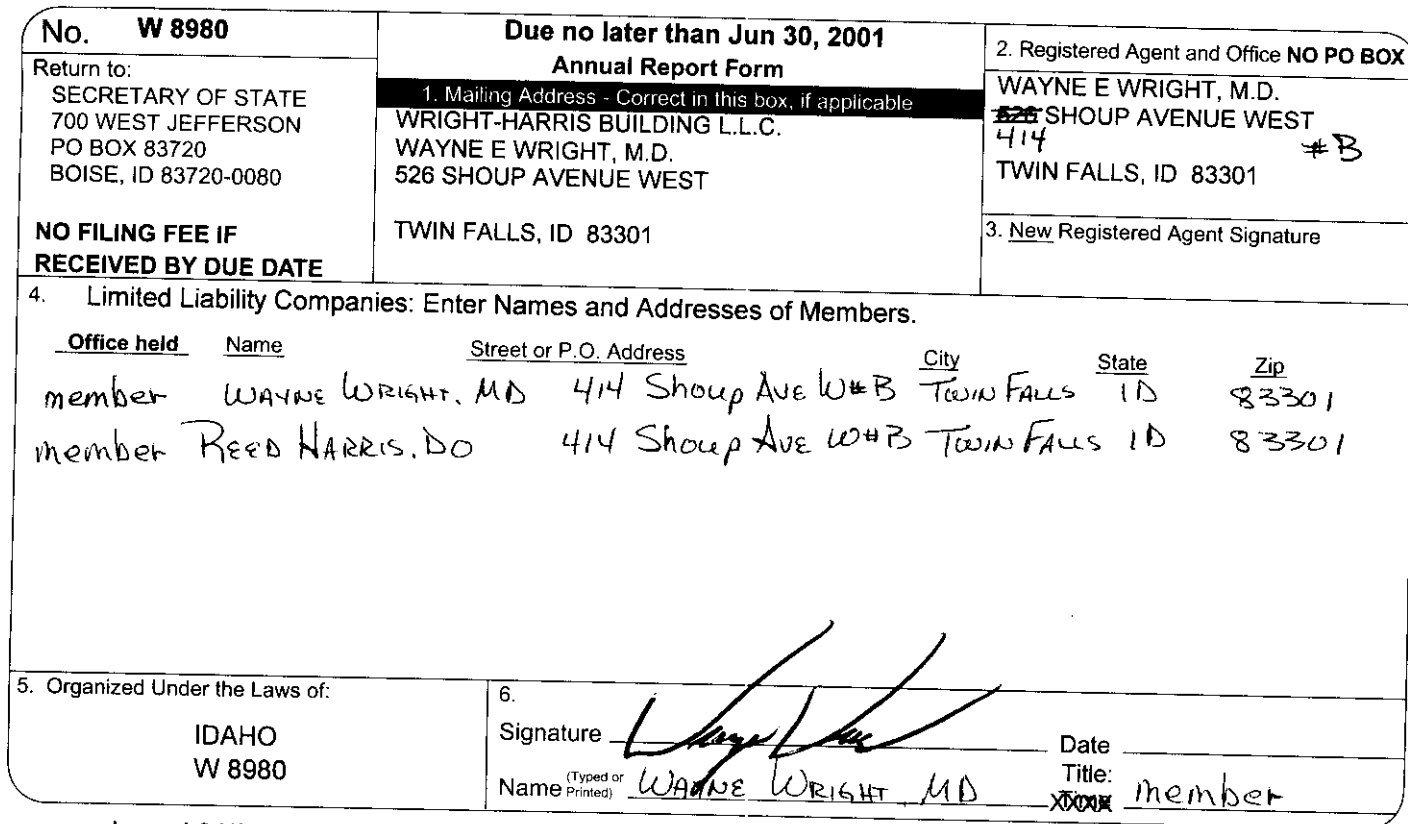 No. W 8980
Return to:
SECRETARY OF STATE
700 WEST JEFFERSON
PO BOX 83720
BOISE, ID 83720-0080
NO FILING FEE IF
RECEIVED BY DUE DATE
Due no later than Jun 30, 2001
Annual Report Form
1. Mailing Address - Correct in this box, if applicable
WRIGHT-HARRIS BUILDING L.L.C.
WAYNE E WRIGHT, M.D.
526 SHOUP AVENUE WEST
TWIN FALLS, ID 83301
2. Registered Agent and Office NO PO BOX
WAYNE E WRIGHT, M.D.
526 SHOUP AVENUE WEST
414 #B
TWIN FALLS, ID 83301
3. New Registered Agent Signature
4. Limited Liability Companies: Enter Names and Addresses of Members.
Office held Name Street or P.O. Address City State Zip
member WAYNE WRIGHT, MD 414 Shoup AVE W#B TWIN FALLS ID 83301
member REED HARRIS, DO 414 Shoup AVE W#B TWIN FALLS ID 83301
5. Organized Under the Laws of:
IDAHO
W 8980
6.
Signature Date
Name (Typed or Printed) WAYNE WRIGHT, MD Title: member